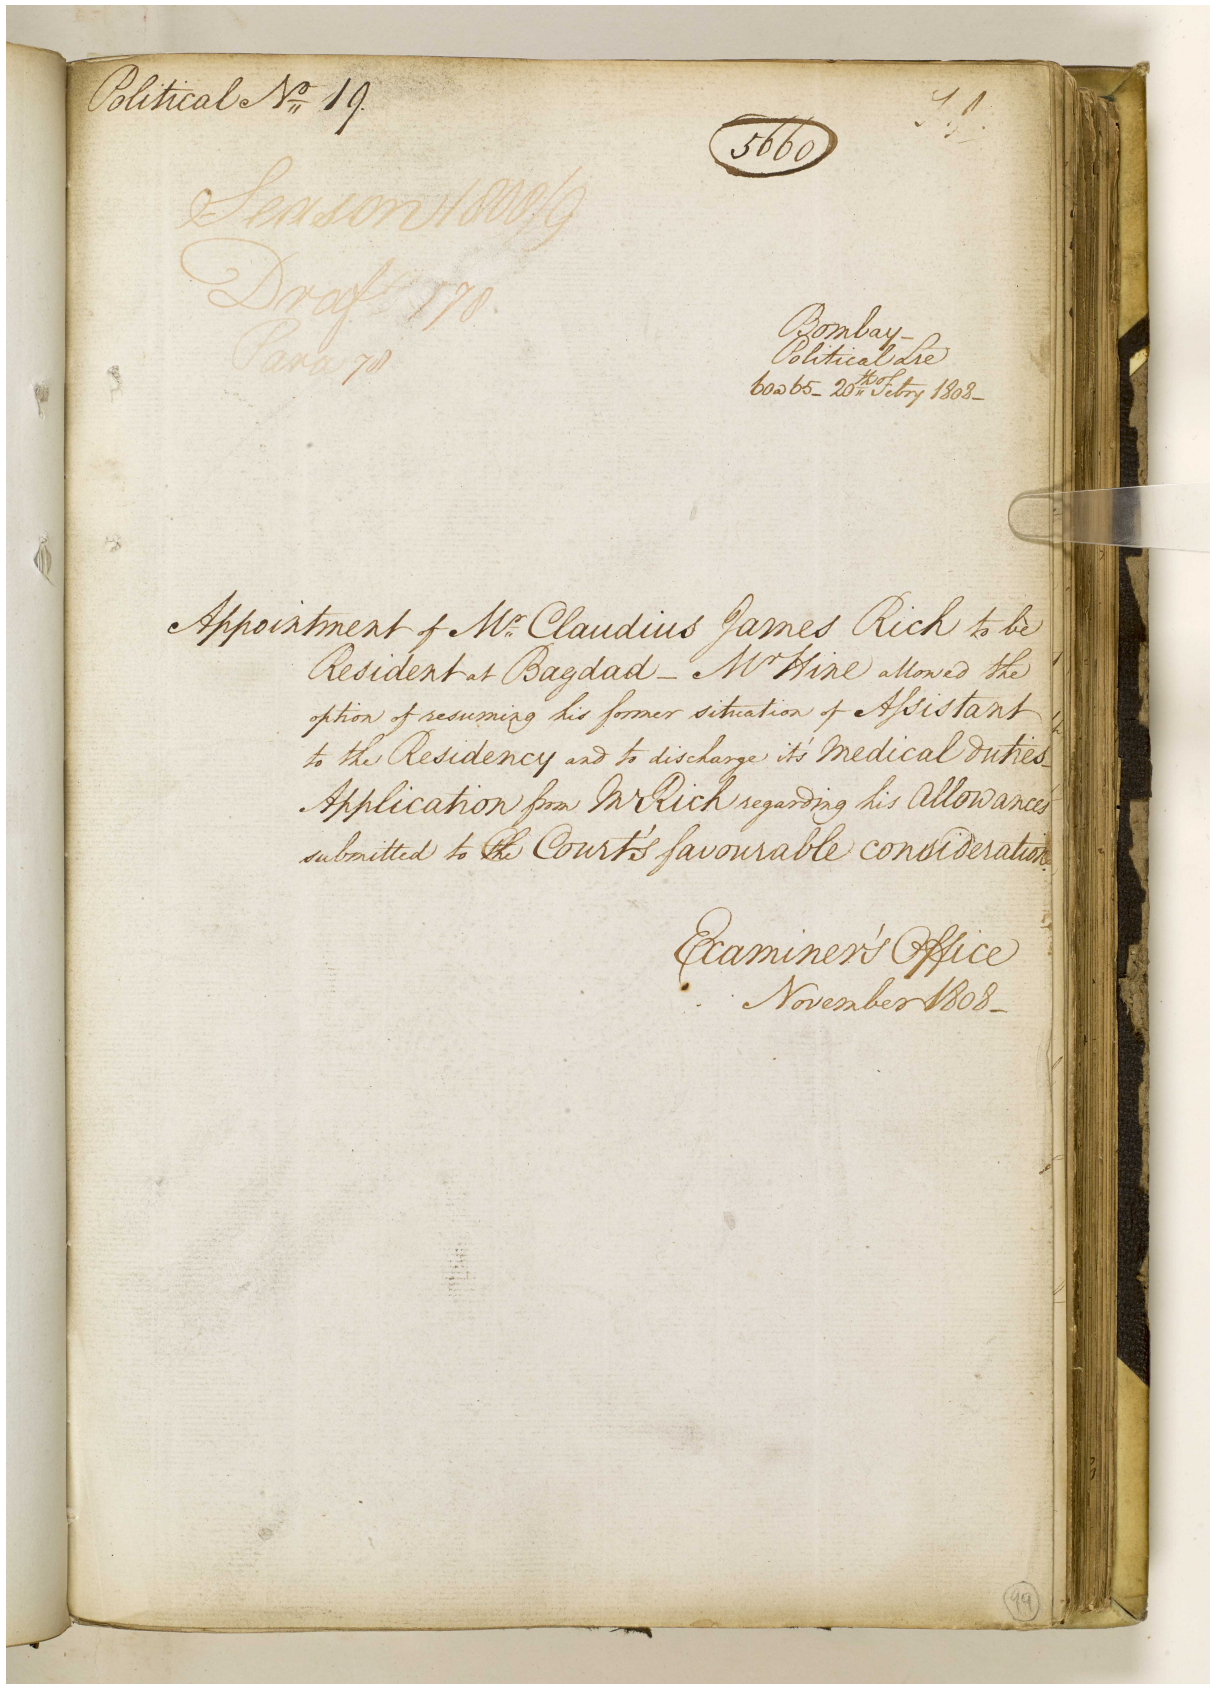 Political No. 19.
5660
Season 1808/9
Draft 170
Para 70
Bombay_
Political Lre
60 a 65_ 20th of Febry 1808_
Appointment of Mr. Claudius James Rich to be
Resident at Bagdad_ Mr Hine allowed the
option of resuming his former situation of Assistant
to the Residency and to discharge it's Medical duties_
Application from Mr Rich regarding his Allowances
submitted to the Court's favourable consideration.
Examiner's Office
November 1808_
99